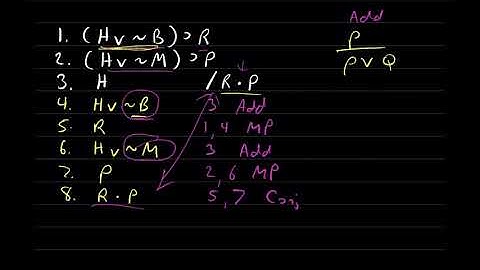 1. (H v ~ B) ⊃ R
2. (H v ~ M) ⊃ P
3. H / R · P
4. H v ~ B 3 Add
5. R 1, 4 MP
6. H v ~ M 3 Add
7. P 2, 6 MP
8. R · P 5, 7 Conj
Add
p
p v Q